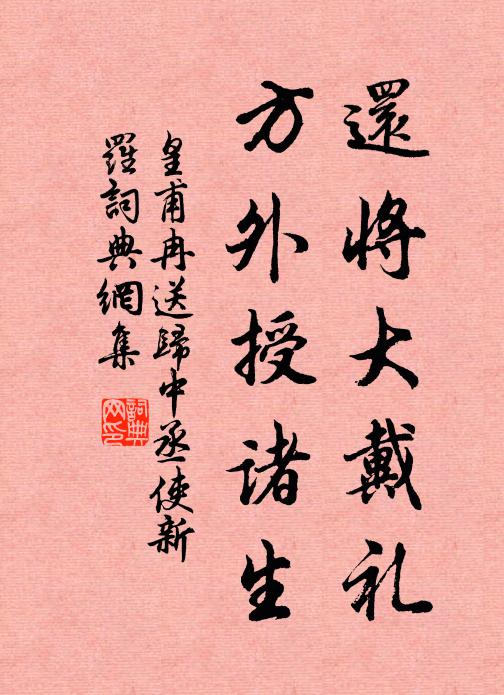 還将大戴礼
方外授诸生
皇甫冉送歸中丞使新
羅詞典網集
詞典网印